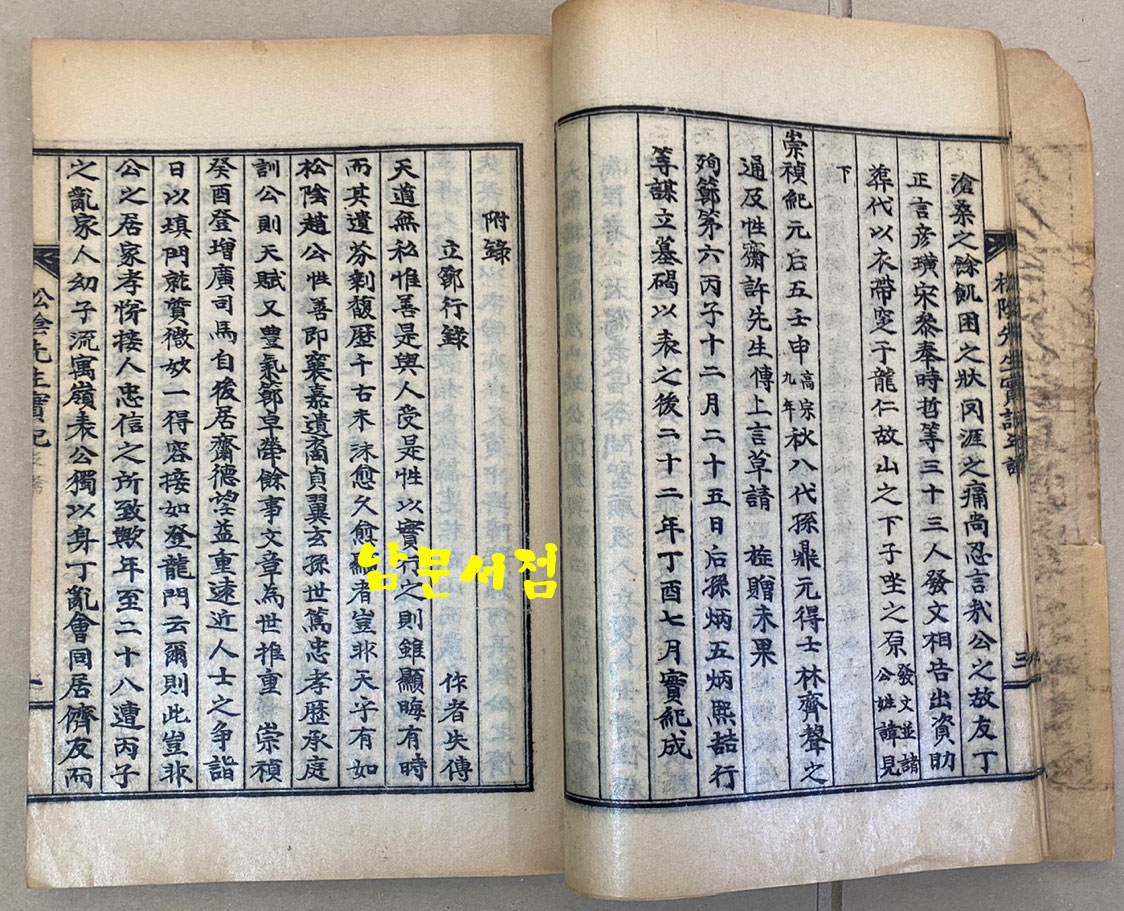 滄桑之餘飢困之狀罔涯之痛尙忍言哉公之故友丁
正言彦璜宋叅奉時哲等三十三人發文相告出資助
葬代以衣帶窆于龍仁故山之下子坐之原發文並諸公姓諱見
下
崇禎紀元后五壬申高宗九年秋八代孫鼎元得士林齊聲之
通及性齋許先生傳上言草請 旌贈未果
殉節第六丙子十二月二十五日后孫炳五炳熙喆行
等謀立墓碣以表之後二十二年丁酉七月實紀成
三
附錄
立節行錄 作者失傳
天道無私惟善是與人受是性以實行之則雖顯晦有時
而其遺芬剩馥歷千古未沫愈久愈顯者豈非天乎有如
松陰趙公性善即襄嘉遺裔貞翼玄孫世篤忠孝歷承庭
訓公則天賦又豊氣節卓犖餘事文章為世推重 崇禎
癸酉登增廣司馬自後居齋德望益重遠近人士之争詣
日以塡門就質微妙一得容接如登龍門云爾則此豈非
公之居家孝悌接人忠信之所致歟年至二十八遭丙子
之亂家人幼子流寓嶺表公獨以身丁亂會同居儕友而
松陰先生實紀
一
남문서점